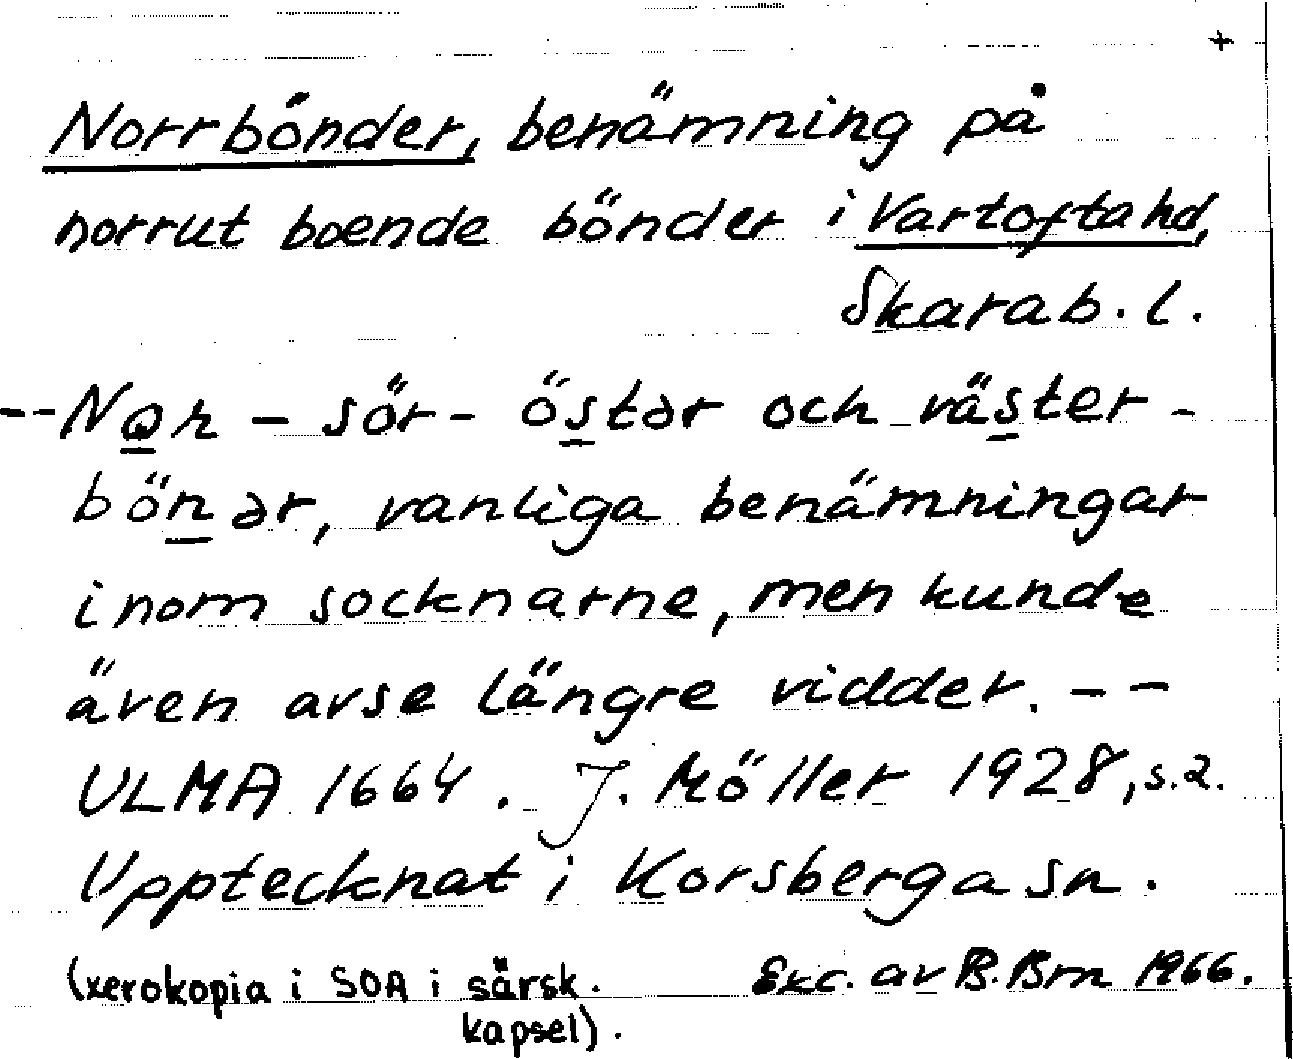 +
Norrbönder, benämning på
norrut boende bönder i Vartoftahd,
Skarab. l.
-- Nǫr - sör - östər och väster -
bönər, vanliga benämningar
inom socknarne, men kunde
även avse längre vidder. - -
ULMA 1664. J. Möller 1928, s. 2.
Upptecknat i Korsberga sn.
(xerokopia i SOA i särsk. Exc. av B. Brn 1966.
kapsel).